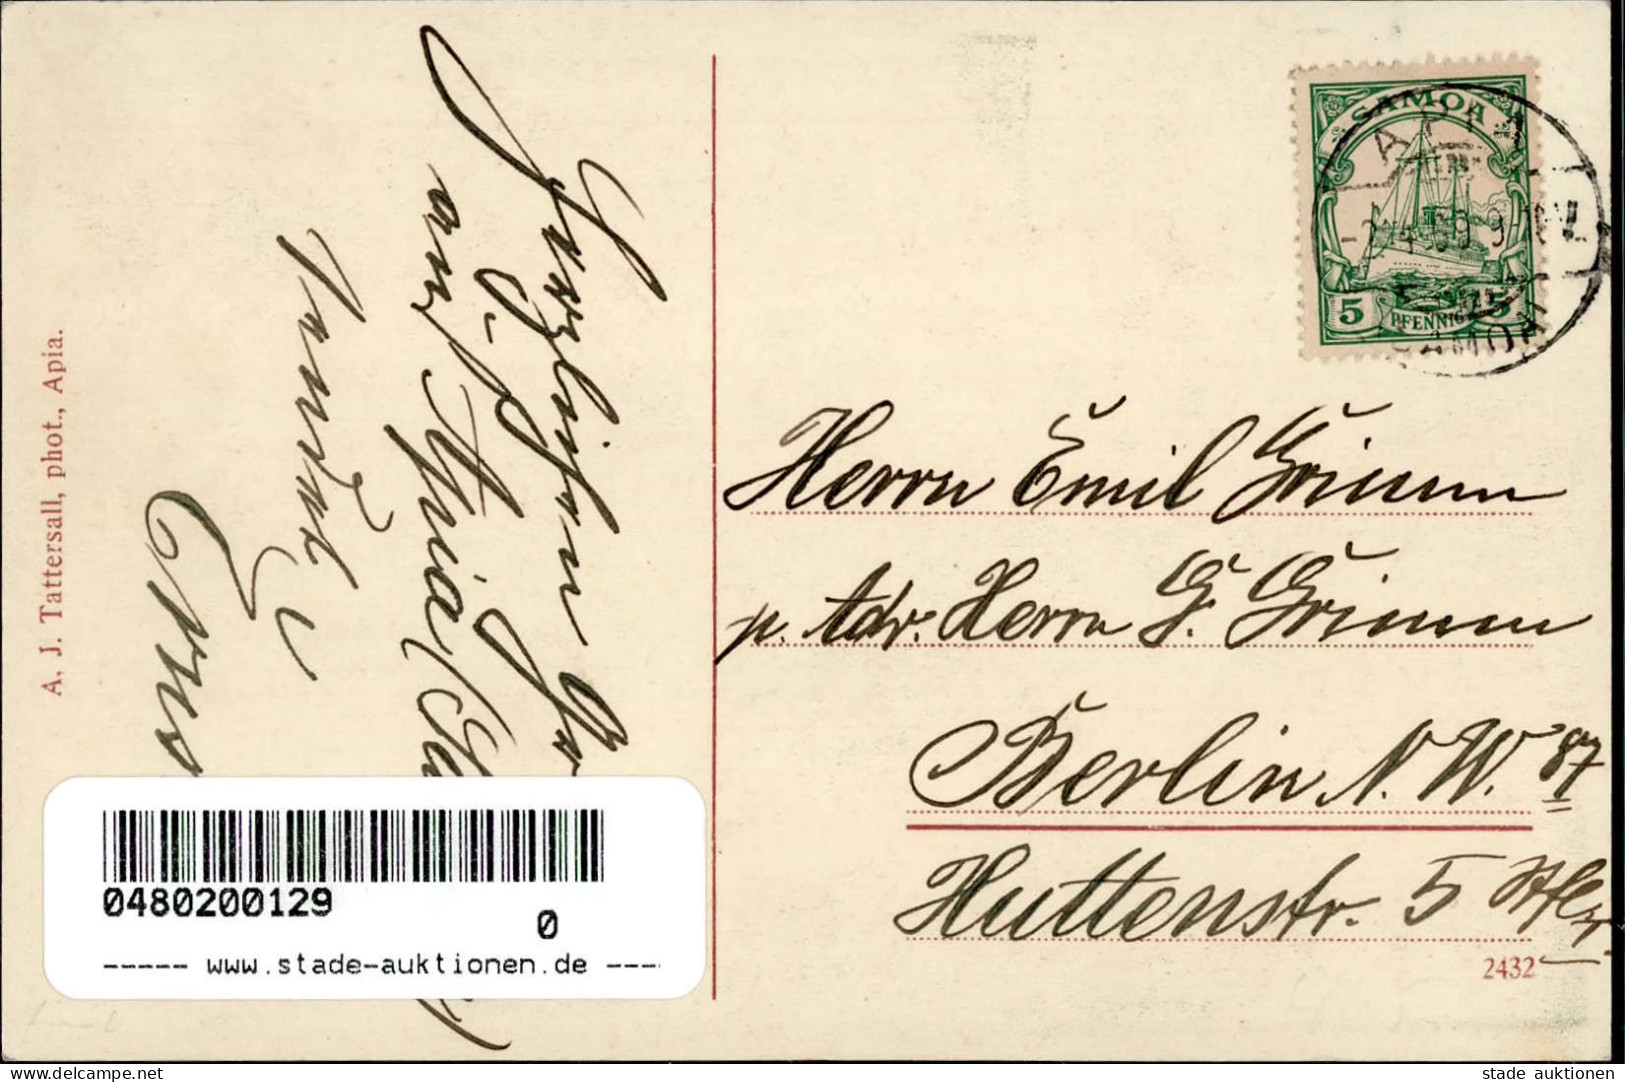 A. J. Tattersall, phot., Apia.
Herzlichen
aus Apia
sendet
SAMOA
5 PFENNIG 5
APIA
9
SAMOA
Herrn Emil Grimm
p. Adr. Herrn G. Grimm
Berlin N. W. 87
Huttenstr. 5
2432
0480200129
0
----- www.stade-auktionen.de ---
www.delcampe.net
stade auktionen